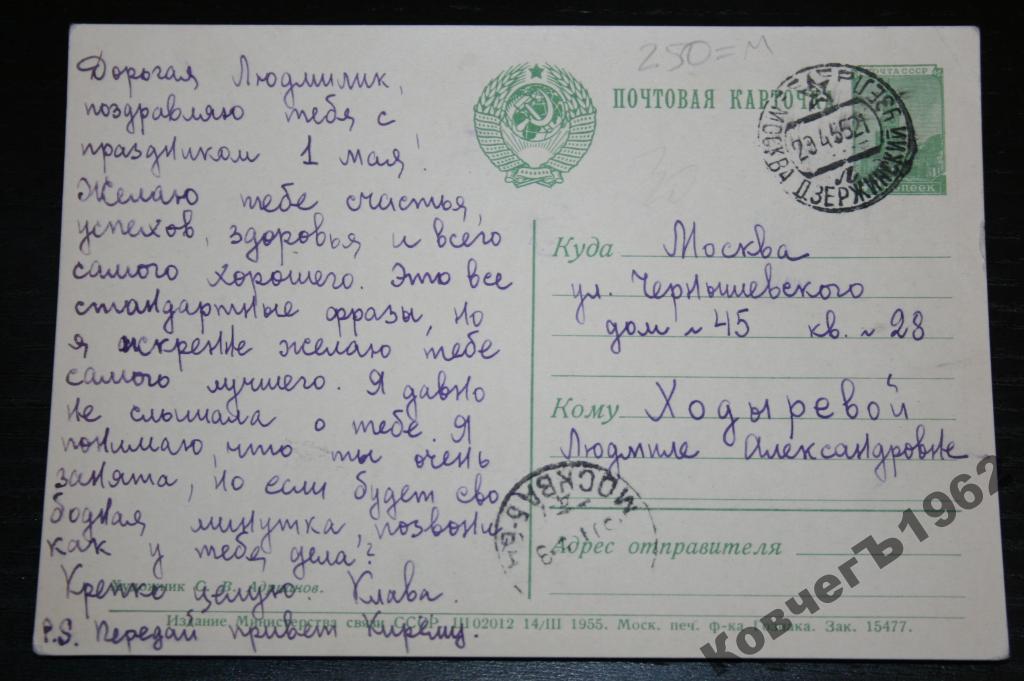 Дорогая Людмилик,
поздравляю тебя с
праздником 1 мая!
Желаю тебе счастья,
успехов, здоровья и всего
самого хорошего. Это все
стандартные фразы, но
я искренне желаю тебе
самого лучшего. Я давно
не слышала о тебе. Я
понимаю, что ты очень
занята, но если будет сво
бодная минутка, позвони
как у тебя дела?
Крепко целую. Клава.
P.S. Передай привет
250=м
ПОЧТОВАЯ КАРТОЧКА
ПОЧТА СССР
МОСКВА ДЗЕРЖИНСКИЙ
29.4.5521
Куда Москва
ул. Чернышевского
дом ~ 45 кв. ~ 28
Кому Ходыревой
Людмиле Александровне
МОСКВА, Б-64
Адрес отправителя
Художник С. В.
Издание Министерства связи СССР. Ш02012 14/III 1955. Моск. печ. ф-ка Гознака. Зак. 15477.
КовчегЪ1962